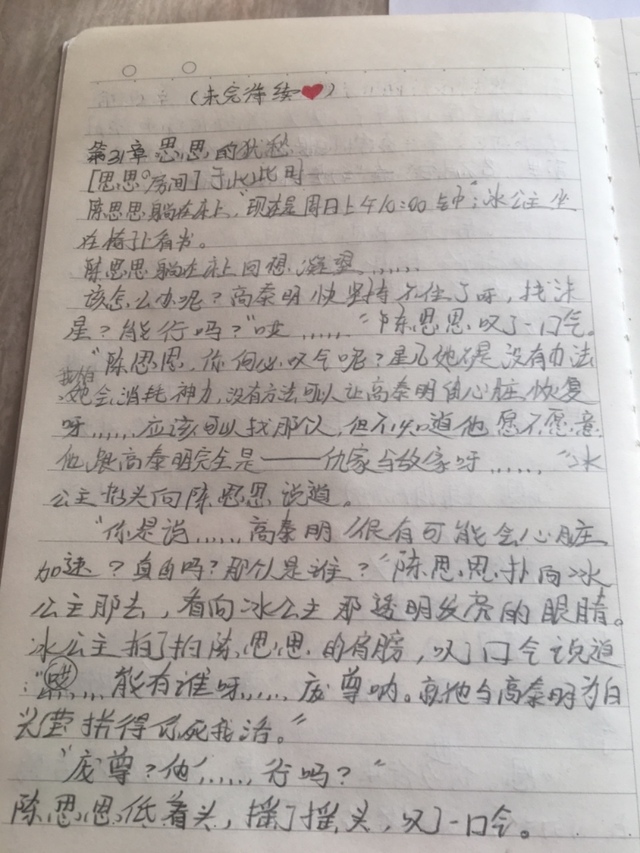 (未完待续❤)
第31章 思思的忧愁
[思思房间]于此此时
陈思思躺在床上,现在是周日上午10:00 冰公主坐
在椅子上看书。
陈思思躺在床上回想,凝望……
该怎么办呢?高泰明快坚持不住了呀,找沫
星?能行吗?"哎……"陈思思叹了一口气。
"陈思思,你何必叹气呢?星儿她不是没有办法
她会消耗神力,没有方法可以让高泰明的心脏恢复
呀……应该可以找那个人,但不知道他愿不愿意
他跟高泰明完全是——仇家与敌家呀……"冰
公主抬头向陈思思说道。
"你是说……高泰明很有可能会心脏
加速?真的吗?那个人是谁?"陈思思扑向冰
公主那去,看向冰公主那透明发亮的眼睛。
冰公主拍了拍陈思思的肩膀,叹了口气说道
:"……能有谁呀……庞尊呐。就他与高泰明为白
光莹拼得你死我活。"
"庞尊?他……行吗?"
陈思思低着头,摇了摇头,叹了一口气。